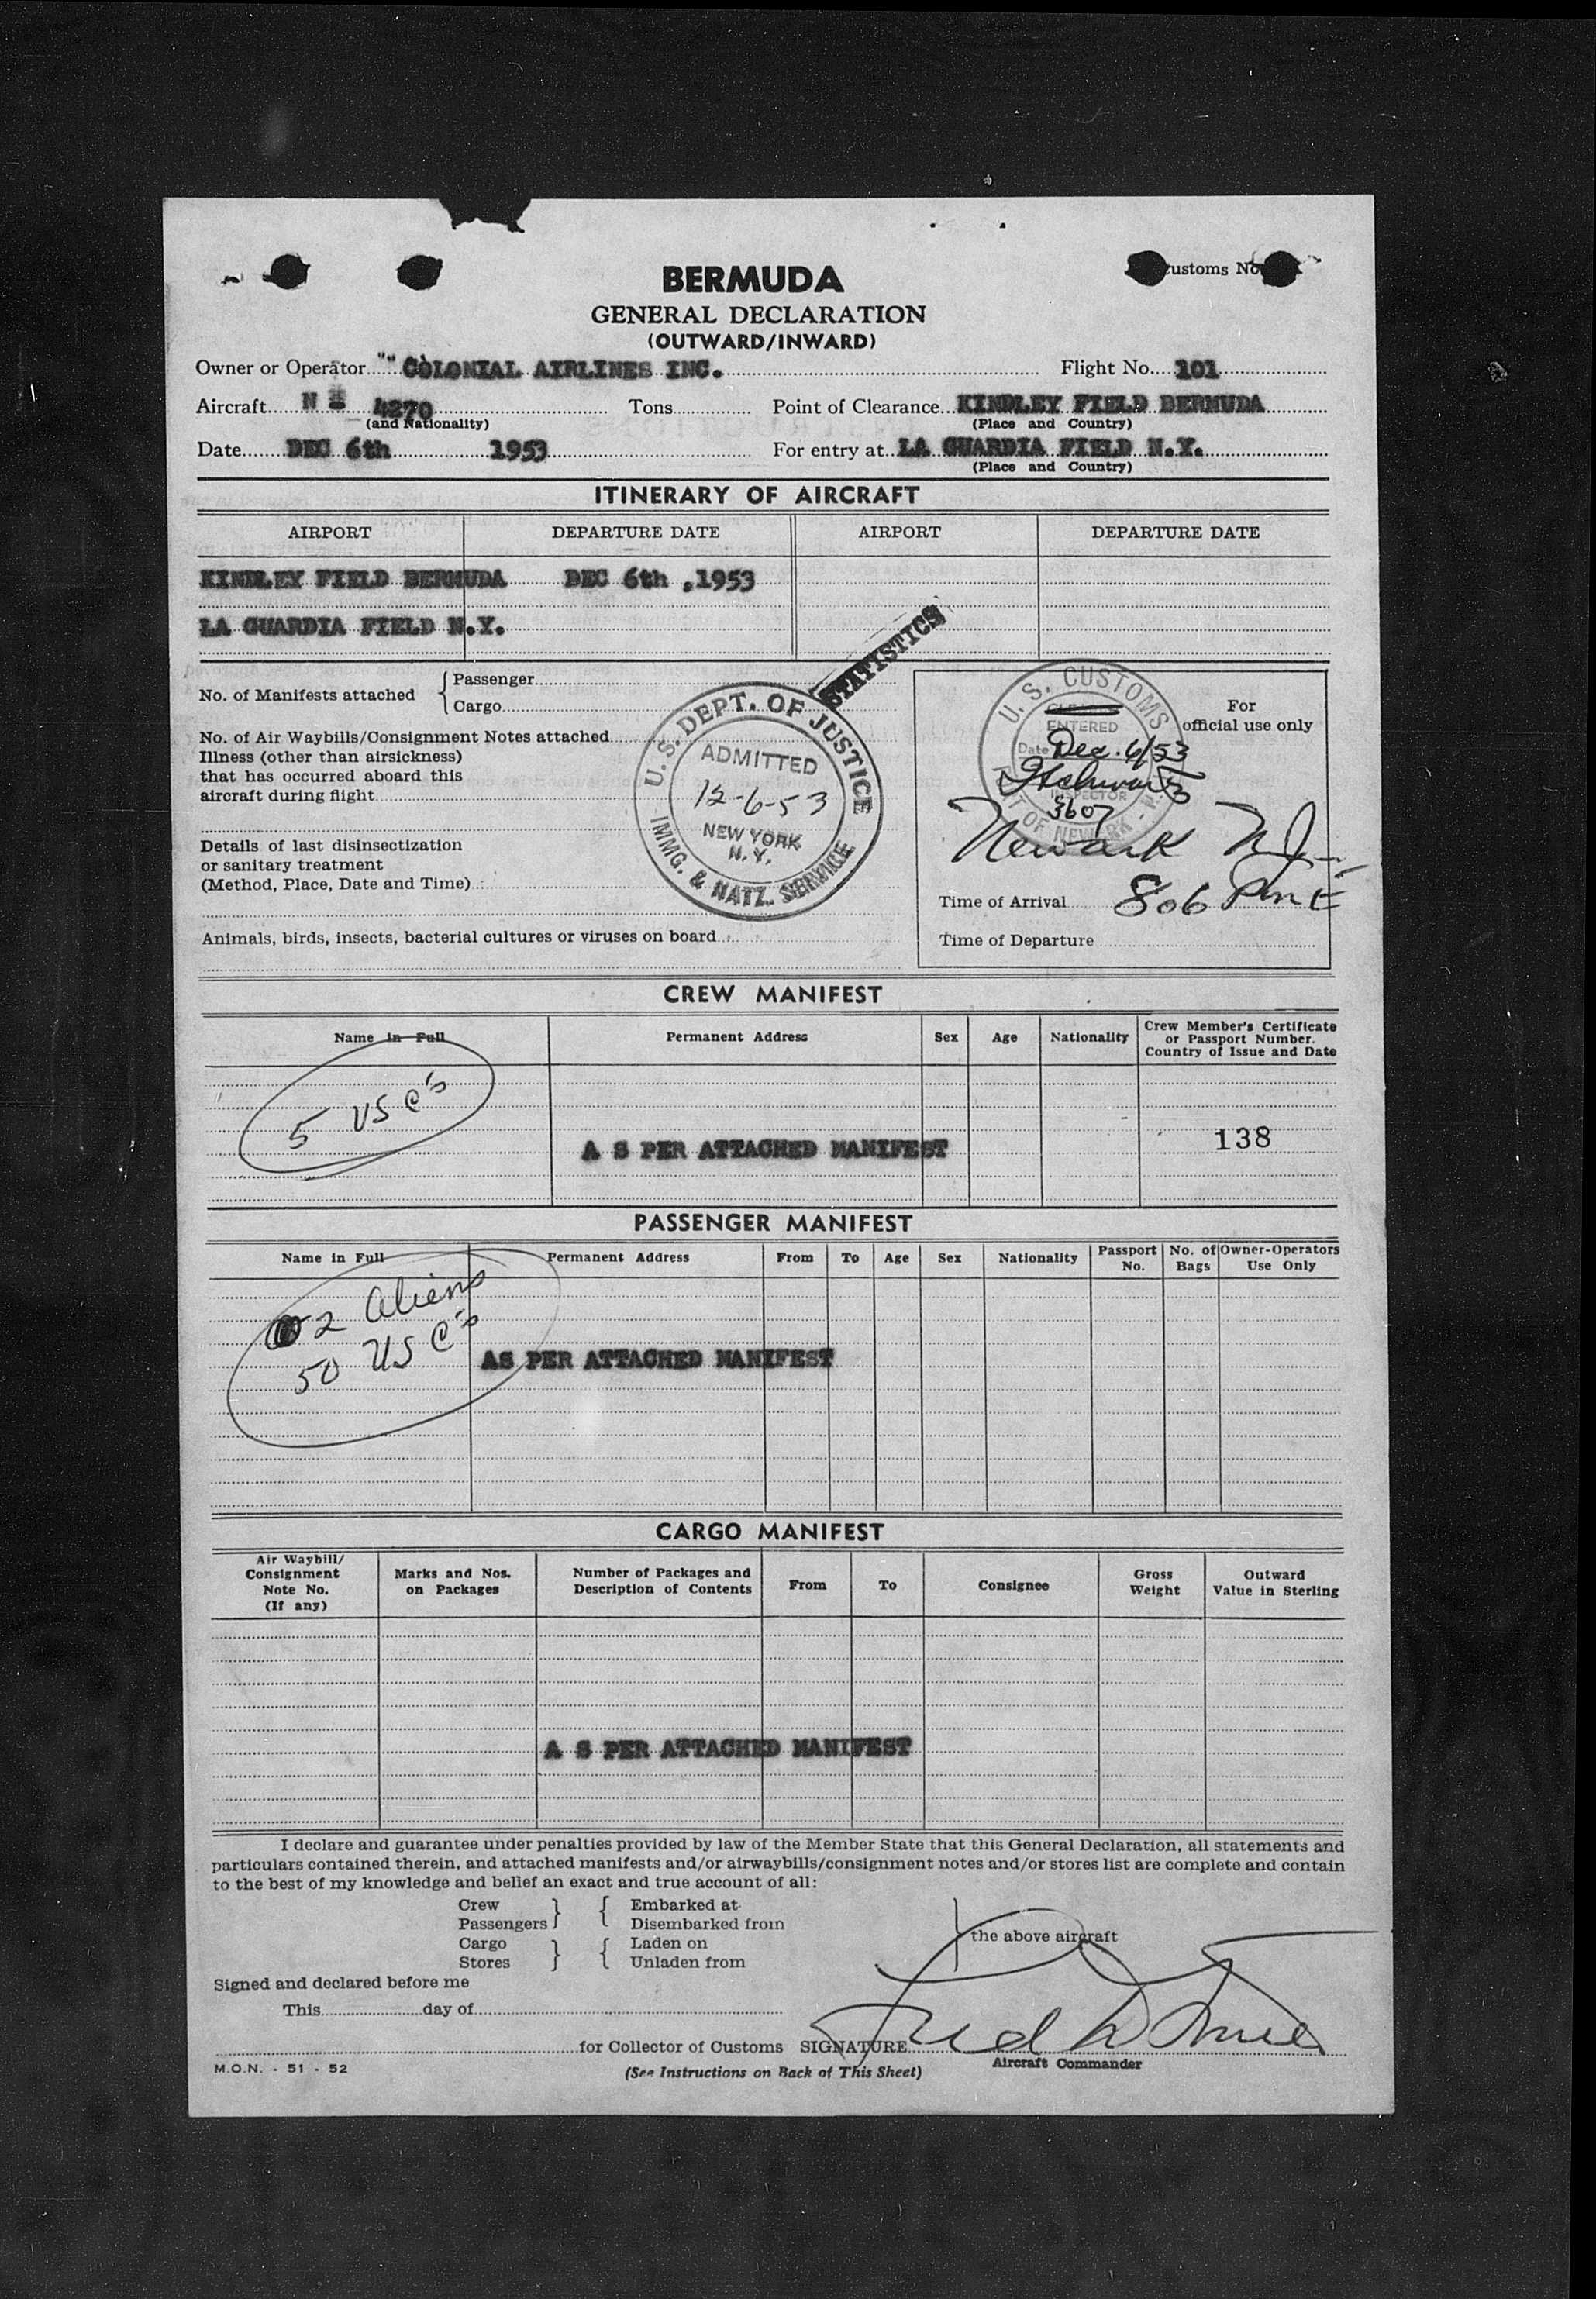 BERMUDA
ustoms No
GENERAL DECLARATION
(OUTWARD/INWARD)
Owner or Operator COLONIAL AIRLINES INC. Flight No. 101
Aircraft N 4270 Tons Point of Clearance KINDLEY FIELD BERMUDA
(and Nationality) (Place and Country)
Date DEC 6th 1953 For entry at LA GUARDIA FIELD N.Y.
(Place and Country)
ITINERARY OF AIRCRAFT
AIRPORT DEPARTURE DATE AIRPORT DEPARTURE DATE
KINDLEY FIELD BERMUDA DEC 6th ,1953
LA GUARDIA FIELD N.Y.
STATISTICS
No. of Manifests attached { Passenger
Cargo
No. of Air Waybills/Consignment Notes attached
Illness (other than airsickness)
that has occurred aboard this
aircraft during flight
Details of last disinsectization
or sanitary treatment
(Method, Place, Date and Time)
Animals, birds, insects, bacterial cultures or viruses on board
U. S. DEPT. OF JUSTICE
ADMITTED
12-6-53
NEW YORK
N. Y.
IMMG. & NATZ. SERVICE
U. S. CUSTOMS
For
official use only
ENTERED
Date Dec. 6/53
INSPECTOR
3607
OF NEWARK
Newark NJ
Time of Arrival 806 Pm E
Time of Departure
CREW MANIFEST
Name in Full Permanent Address Sex Age Nationality Crew Member's Certificate
or Passport Number.
Country of Issue and Date
5 US C's
A S PER ATTACHED MANIFEST
138
PASSENGER MANIFEST
Name in Full Permanent Address From To Age Sex Nationality Passport No. No. of Bags Owner-Operators Use Only
2 Aliens
50 US C's
AS PER ATTACHED MANIFEST
CARGO MANIFEST
Air Waybill/
Consignment
Note No.
(If any)
Marks and Nos.
on Packages
Number of Packages and
Description of Contents
From To Consignee
Gross
Weight
Outward
Value in Sterling
A S PER ATTACHED MANIFEST
I declare and guarantee under penalties provided by law of the Member State that this General Declaration, all statements and
particulars contained therein, and attached manifests and/or airwaybills/consignment notes and/or stores list are complete and contain
to the best of my knowledge and belief an exact and true account of all:
Crew } { Embarked at
Passengers Disembarked from
the above aircraft
Cargo } { Laden on
Stores Unladen from
Signed and declared before me
This day of
for Collector of Customs SIGNATURE
Aircraft Commander
M.O.N. - 51 - 52
(See Instructions on Back of This Sheet)